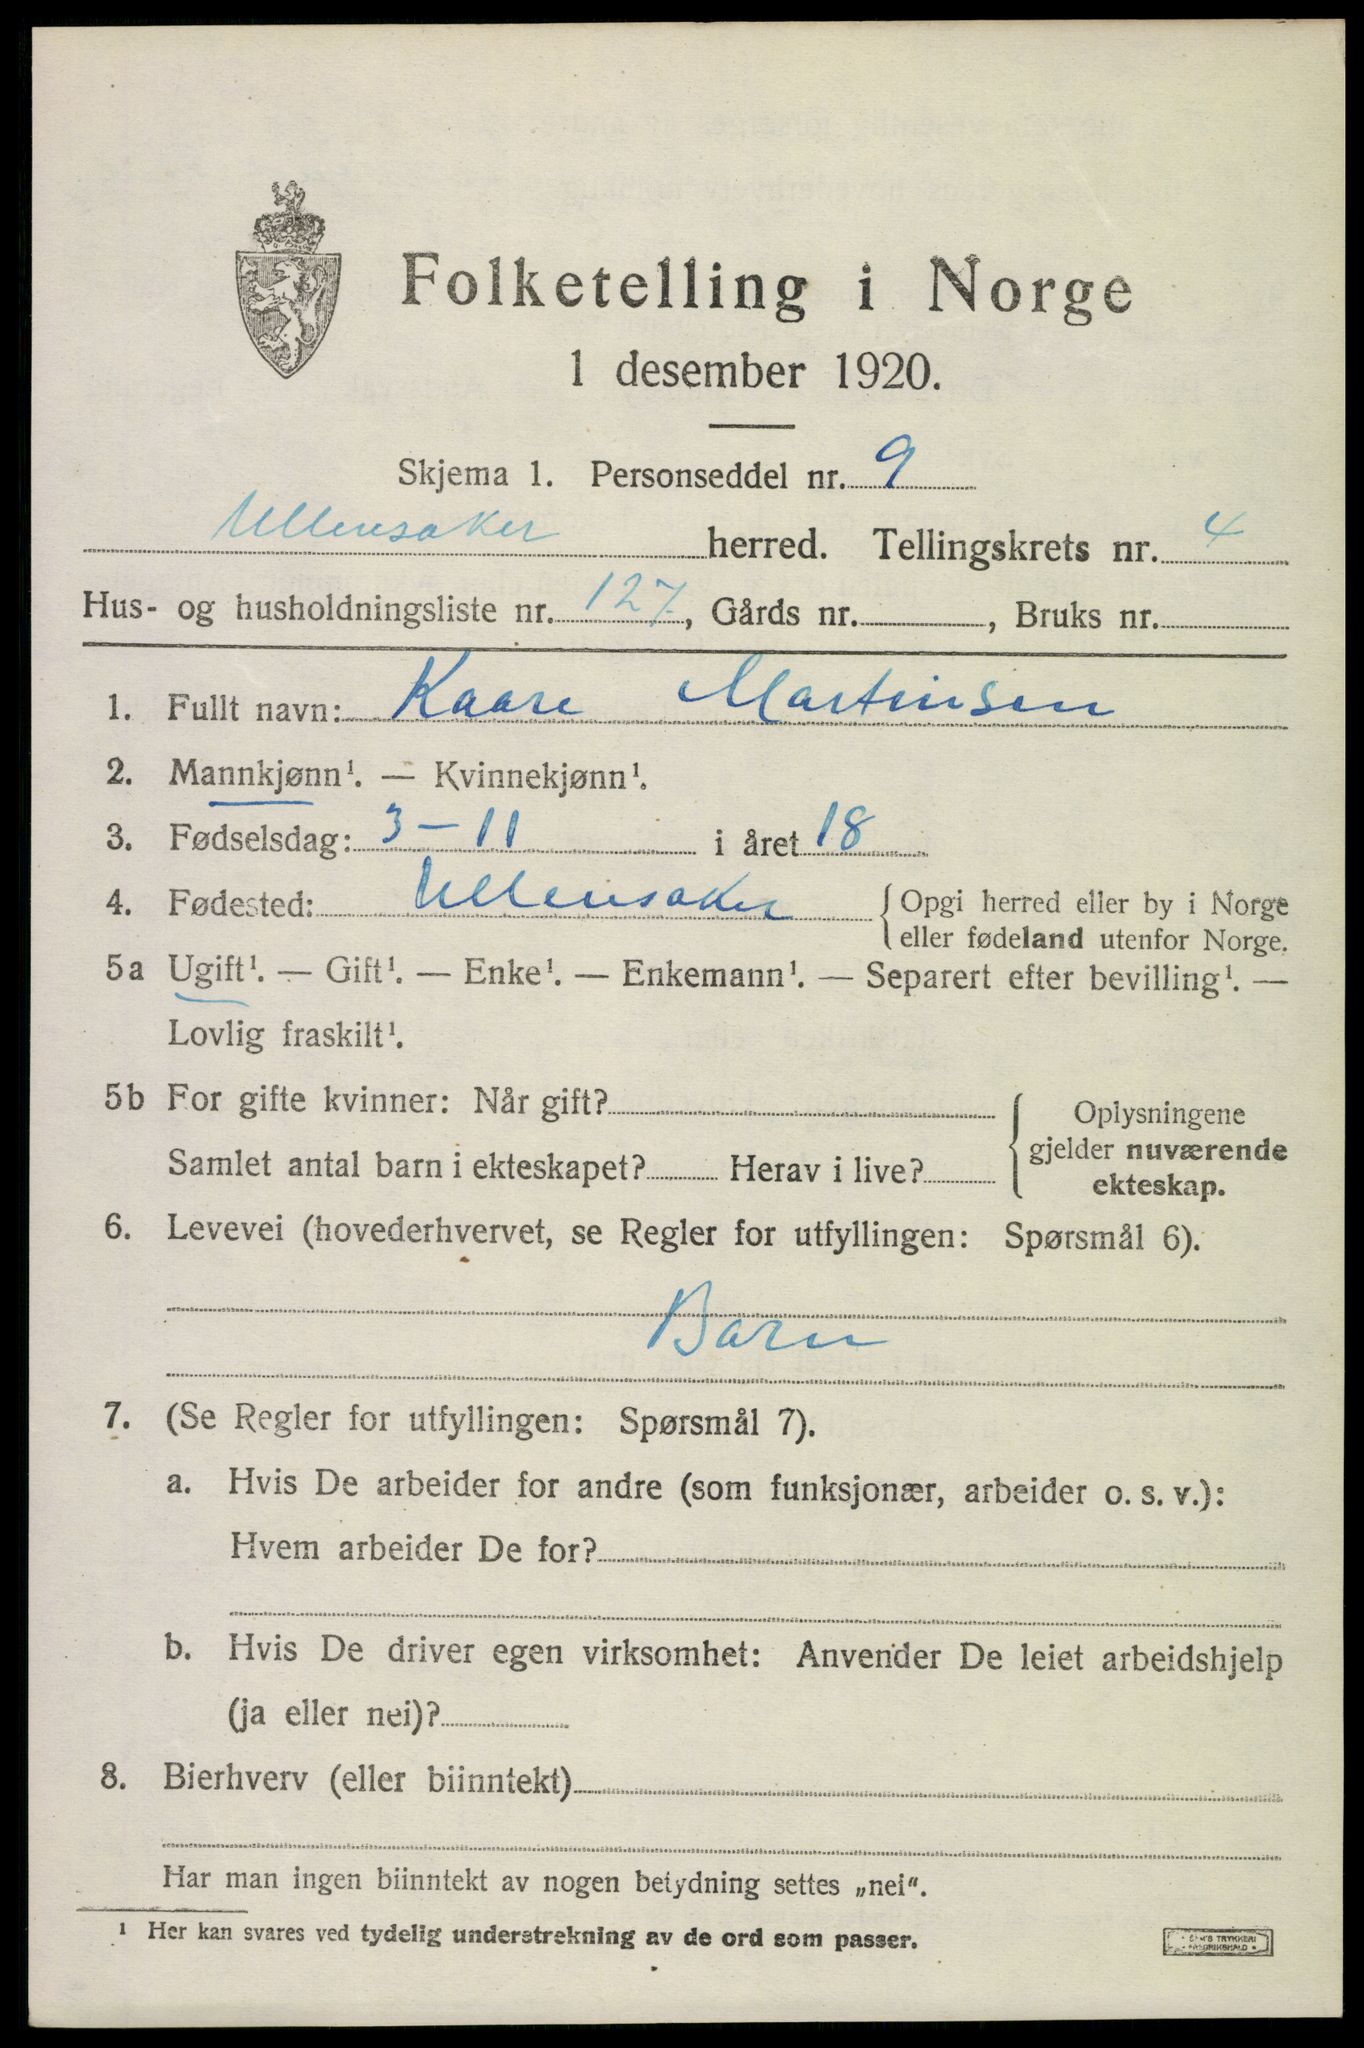 Folketelling i Norge
1 desember 1920.
Skjema 1. Personseddel nr. 9
Ullensaker herred. Tellingskrets nr. 4
Hus- og husholdningsliste nr. 127, Gårds nr. , Bruks nr.
1. Fullt navn: Kaare Martinsen
2. Mannkjønn¹. — Kvinnekjønn¹.
3. Fødselsdag: 3-11 i året 18
4. Fødested: Ullensaker { Opgi herred eller by i Norge
eller fødeland utenfor Norge.
5a Ugift¹. — Gift¹. — Enke¹. — Enkemann¹. — Separert efter bevilling¹. —
Lovlig fraskilt¹.
5b For gifte kvinner: Når gift?
Samlet antal barn i ekteskapet? Herav i live?
Oplysningene
gjelder nuværende
ekteskap.
6. Levevei (hovederhvervet, se Regler for utfyllingen: Spørsmål 6).
Barn
7. (Se Regler for utfyllingen: Spørsmål 7).
a. Hvis De arbeider for andre (som funksjonær, arbeider o. s. v.):
Hvem arbeider De for?
b. Hvis De driver egen virksomhet: Anvender De leiet arbeidshjelp
(ja eller nei)?
8. Bierhverv (eller biinntekt)
Har man ingen biinntekt av nogen betydning settes „nei“.
¹ Her kan svares ved tydelig understrekning av de ord som passer.
TRYKKERI